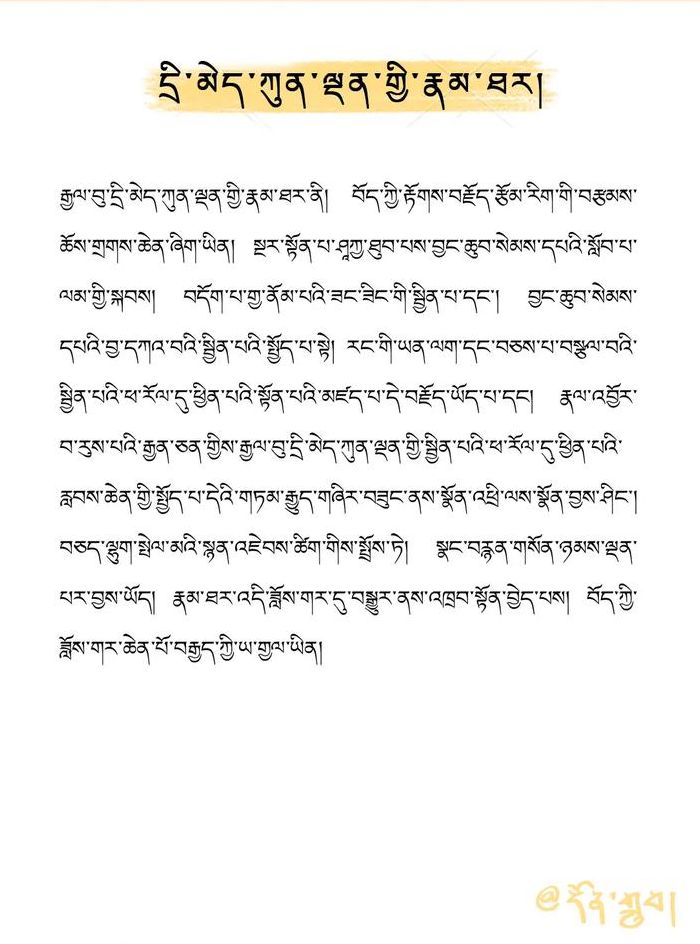 དྲི་མེད་ཀུན་ལྡན་གྱི་རྣམ་ཐར།
རྒྱལ་བུ་དྲི་མེད་ཀུན་ལྡན་གྱི་རྣམ་ཐར་ནི། བོད་ཀྱི་རྟོགས་བརྗོད་རྩོམ་རིག་གི་བརྩམས་
ཆོས་གྲགས་ཆེན་ཞིག་ཡིན། སྔར་སྟོན་པ་ཤཱཀྱ་ཐུབ་པས་བྱང་ཆུབ་སེམས་དཔའི་སློབ་པ་
ལམ་གྱི་སྐབས། བདོག་པ་གྱ་ནོམ་པའི་ཟང་ཟིང་གི་སྦྱིན་པ་དང་། བྱང་ཆུབ་སེམས་
དཔའི་བྱ་དཀའ་བའི་སྦྱིན་པའི་སྤྱོད་པ་སྟེ། རང་གི་ཡན་ལག་དང་བཅས་པ་བསྩལ་བའི་
སྦྱིན་པའི་ཕ་རོལ་དུ་ཕྱིན་པའི་སྟོན་པའི་མཛད་པ་དེ་བརྗོད་ཡོད་པ་དང། རྣལ་འབྱོར་
བ་རུས་པའི་རྒྱན་ཅན་གྱིས་རྒྱལ་བུ་དྲི་མེད་ཀུན་ལྡན་གྱི་སྦྱིན་པའི་ཕ་རོལ་དུ་ཕྱིན་པའི་
རླབས་ཆེན་གྱི་སྤྱོད་པ་དེའི་གཏམ་རྒྱུད་གཞིར་བཟུང་ནས་སྣོན་འཕྲི་ལས་སྣོན་བྱས་ཤིང་།
བཅད་ལྷུག་སྤེལ་མའི་སྙན་འཇེབས་ཚིག་གིས་སྤྲོས་ཏེ། སྣང་བརྙན་གསོན་ཉམས་ལྡན་
པར་བྱས་ཡོད། རྣམ་ཐར་འདི་ཟློས་གར་དུ་བསྒྱུར་ནས་འཁྲབ་སྟོན་བྱེད་པས། བོད་ཀྱི་
ཟློས་གར་ཆེན་པོ་བརྒྱད་ཀྱི་ཡ་གྱལ་ཡིན།
@དོན་གྲུབ།